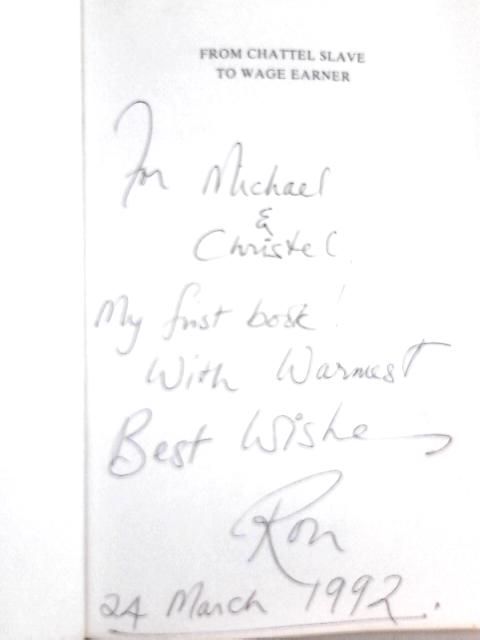 FROM CHATTEL SLAVE
TO WAGE EARNER
For Michael
&
Christel
My first book!
With Warmest
Best Wishes
Ron
24 March 1992.